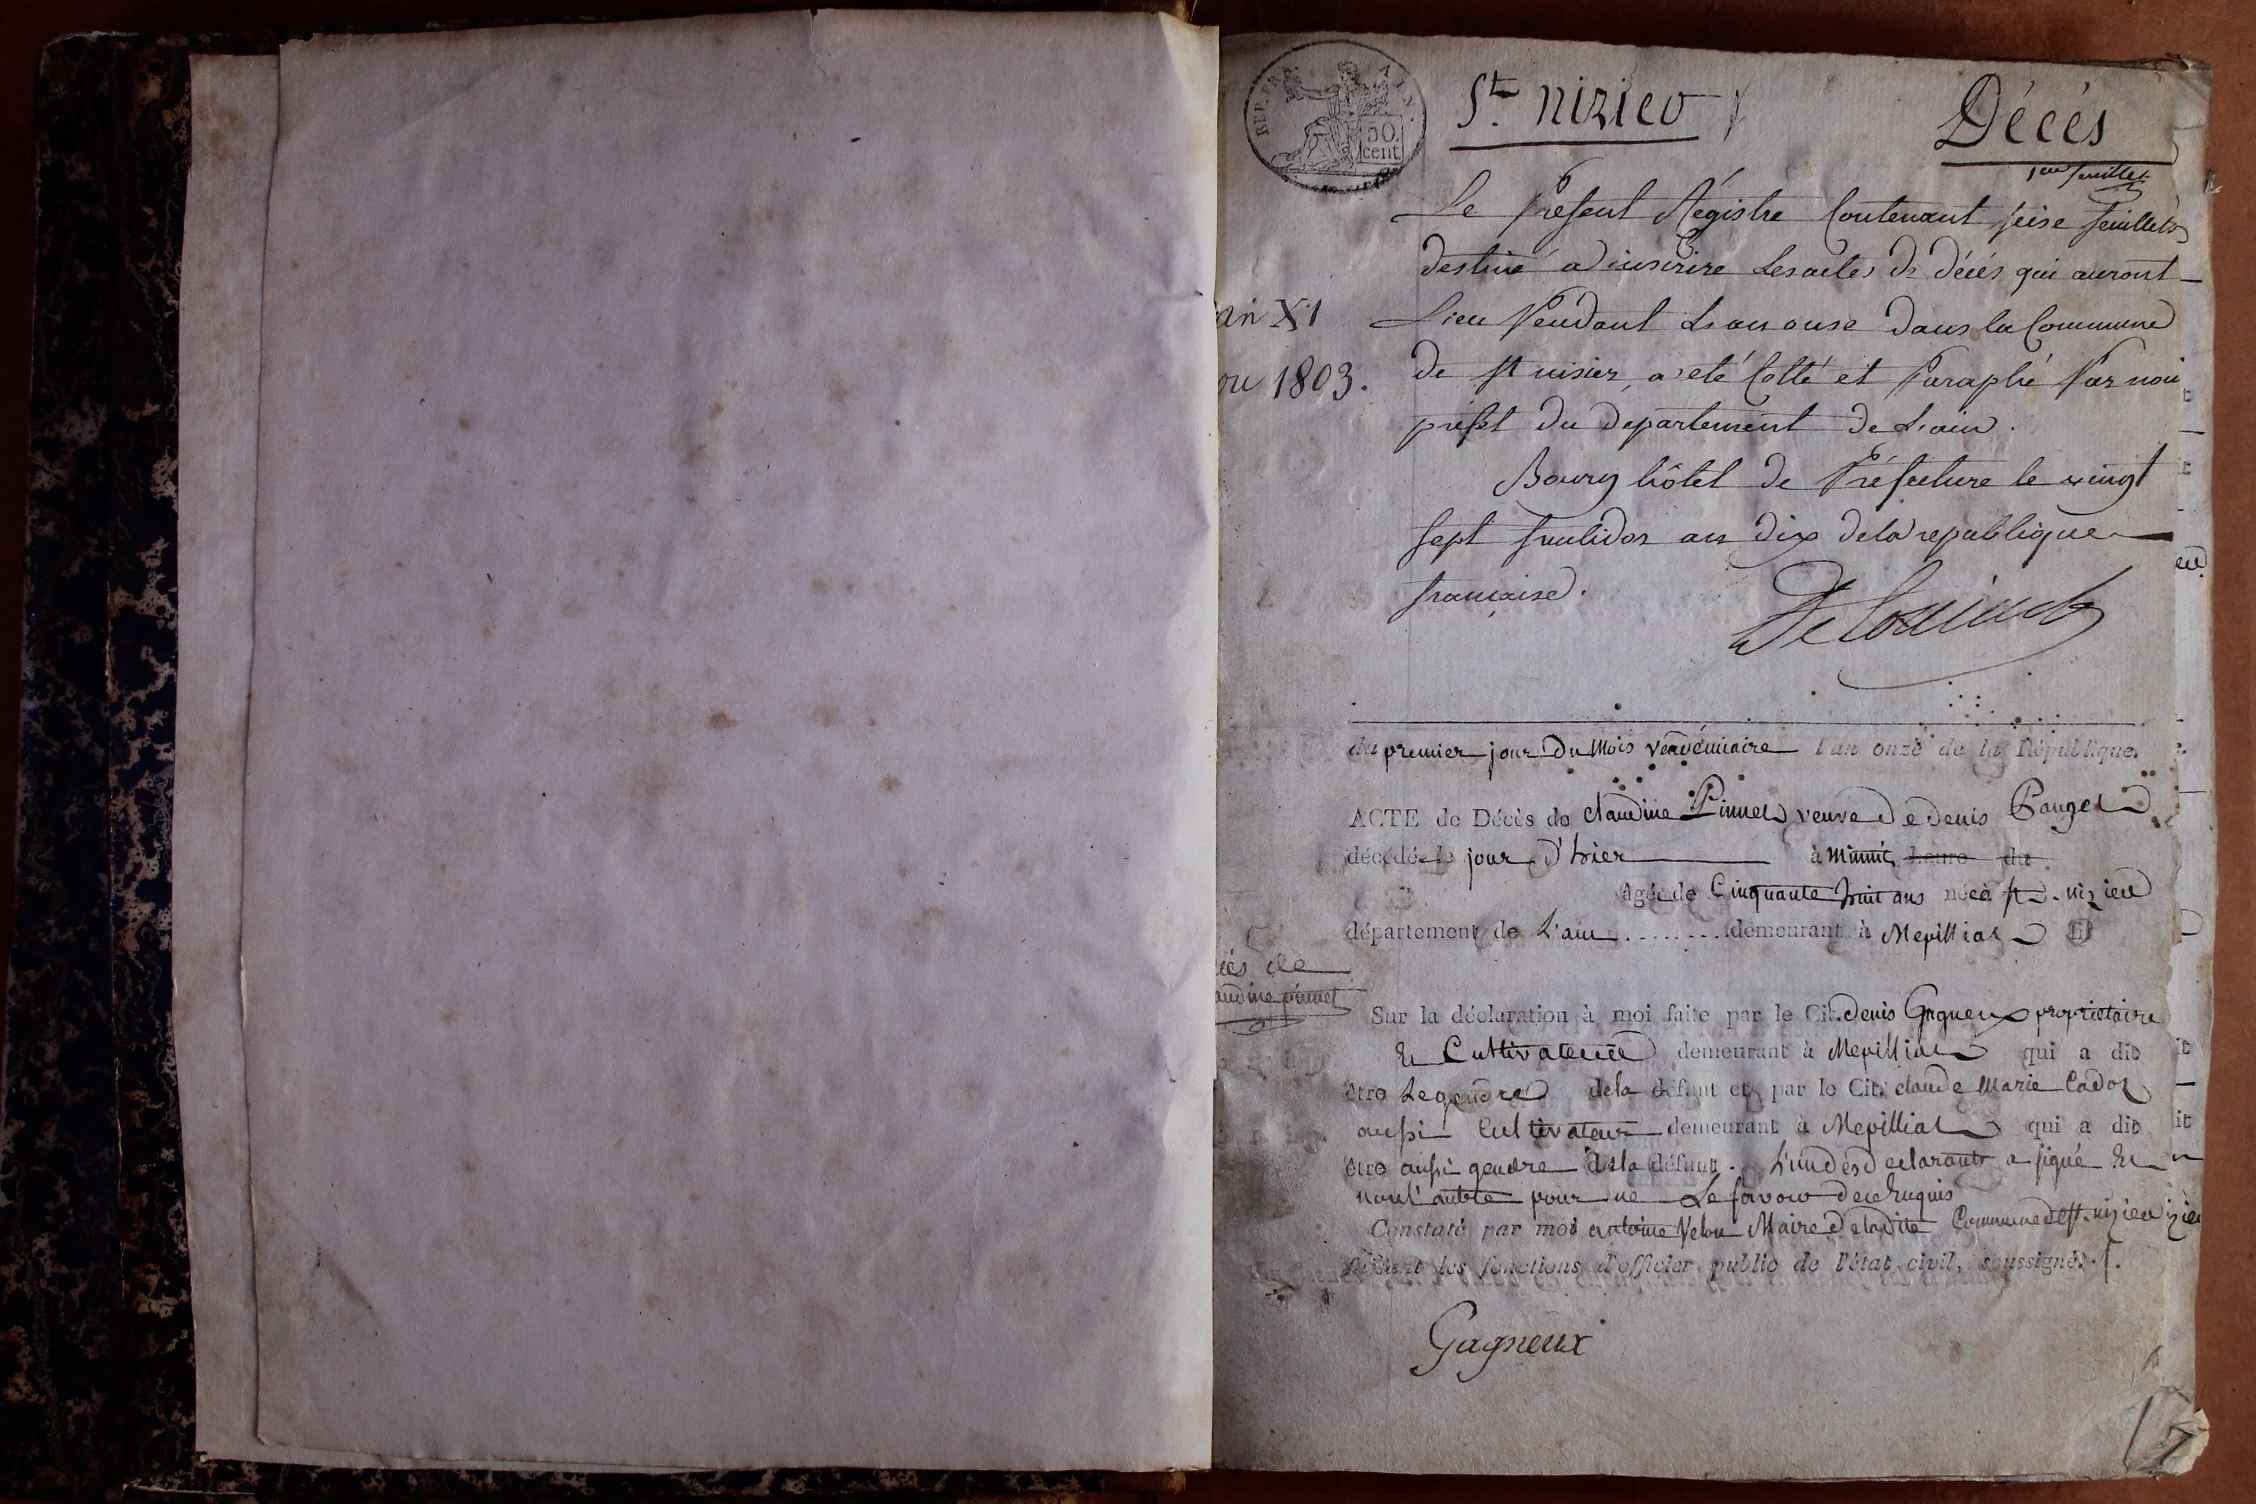 REP. FRA. AIN.
50 cent
St. nizieu
Décés
1er feuillet
Le présent Régistre Contenant seise feuillets
destiné a inscrire les actes de décés qui auront
Lieu Pendant L'an onse dans la Commune
an XI
de st nisier, a été Cotté et Paraphé Par nous
ou 1803.
préfet du département de L'ain.
Bourg hôtel de Préfecture le vingt
sept fructidor an dix de la republique
française.
du premier jour Du Mois vendémiaire l'an onze de la République.
ACTE de Décès de claudine Pinnet veuve De denis Pauget
décédée le jour d'hier à Minuit heure du
agée de Cinquante huit ans née à st. nizieu
département de L'ain ........ demeurant à Mepilliat
cés de
audine pinnet
Sur la déclaration à moi faite par le Cit. denis Gagneux proprietaire
Et Cultivateur demeurant à Mepilliat qui a dit
être Le gendre de la défunt et par le Cit. claude Marie Cadot
aussi Cultivateur demeurant à Mepilliat qui a dit
être aussi gendre de la défunt. L'un des déclarants a signé Et
non l'autre pour ne Le savoir de ce Enquis
Constaté par moi antoine Velon Maire de ladite Commune de st. nizieu
faisant les fonctions d'officier public de l'état civil, soussigné.
Gagneux